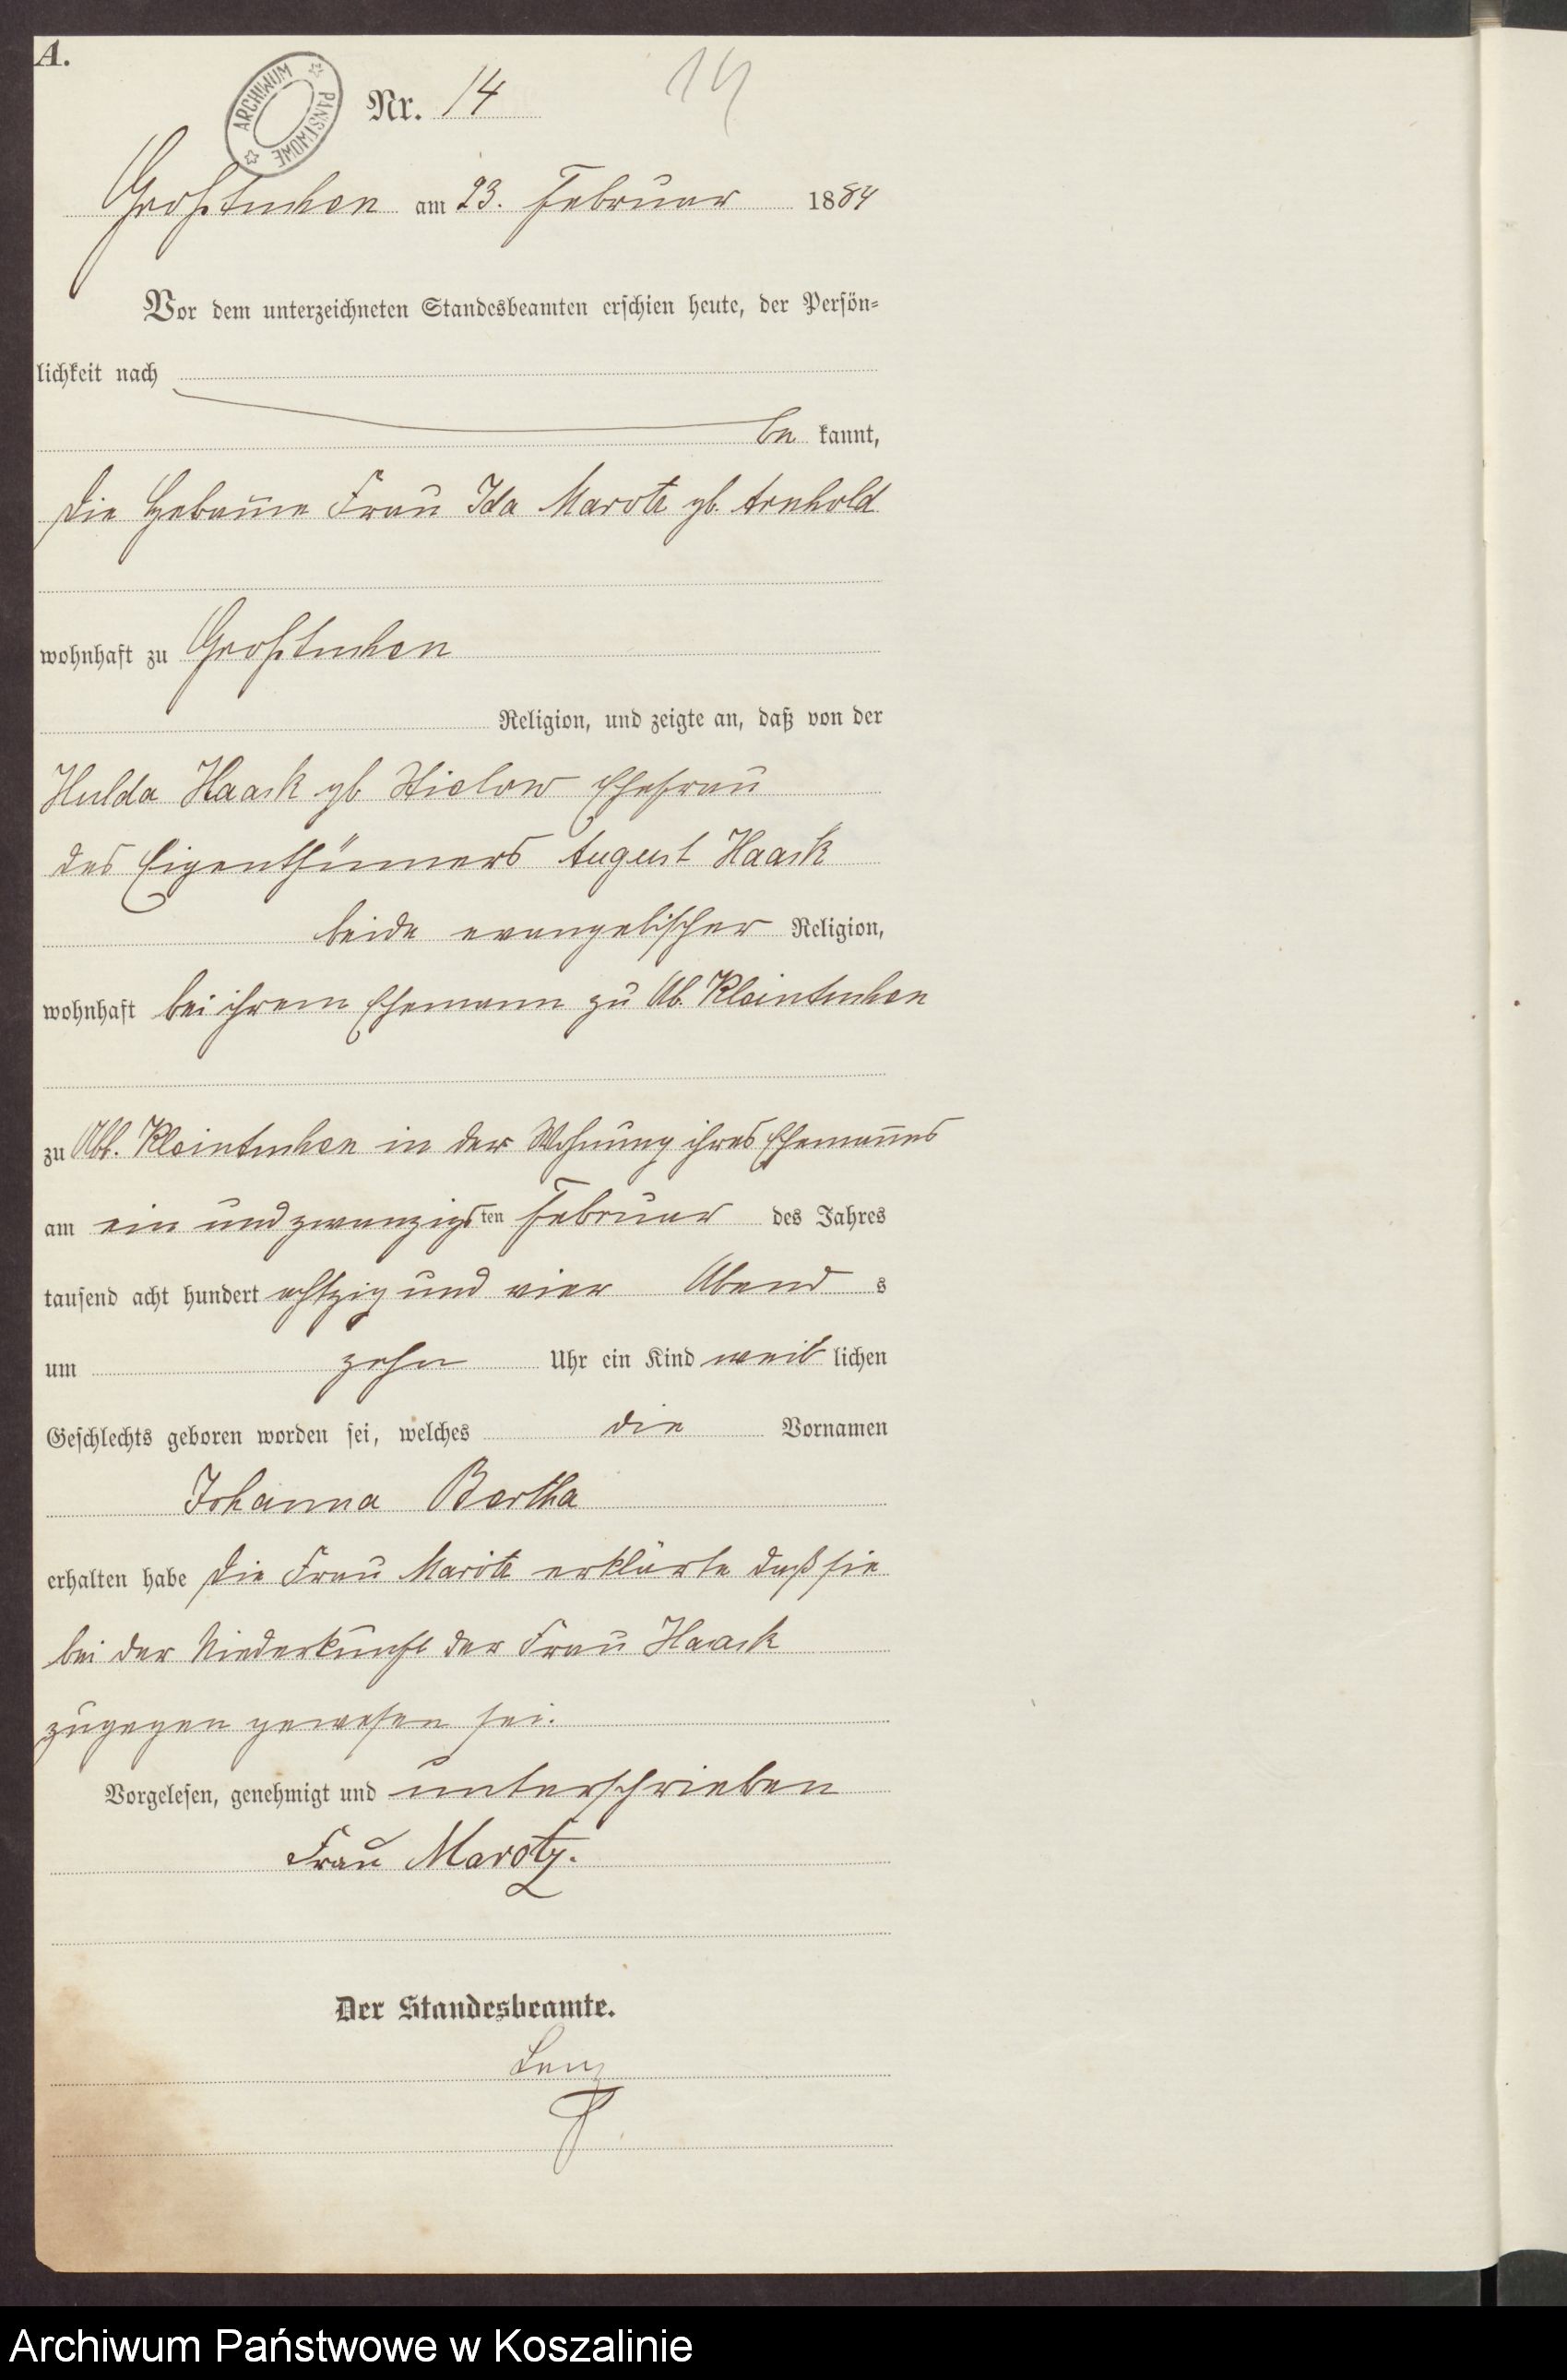 A.
ARCHIWUM PAŃSTWOWE
Nr. 14
14
Großtuchen am 23. Februar 1884
Vor dem unterzeichneten Standesbeamten erschien heute, der Persön=
lichkeit nach
be kannt,
die Hebam̅e Frau Ida Marotz gb. Arnhold
wohnhaft zu Großtuchen
Religion, und zeigte an, daß von der
Hulda Haack gb Ehefrau
des Eigenthümers August Haack
beide evangelischer Religion,
wohnhaft bei ihrem Ehemann zu Ab. Kleintuchen
zu Abb. Kleintuchen in der Wohnung ihres Eheman̅es
am ein und zwanzigsten Februar des Jahres
tausend acht hundert achtzig und vier Abend s
um zehn Uhr ein Kind weib lichen
Geschlechts geboren worden sei, welches die Vornamen
Johanna Bertha
erhalten habe die Frau Marotz erklärte daß sie
bei der Niederkunft der Frau Haack
zugegen gewesen sei.
Vorgelesen, genehmigt und unterschrieben
Frau Marotz.
Der Standesbeamte.
Lenz
Archiwum Państwowe w Koszalinie